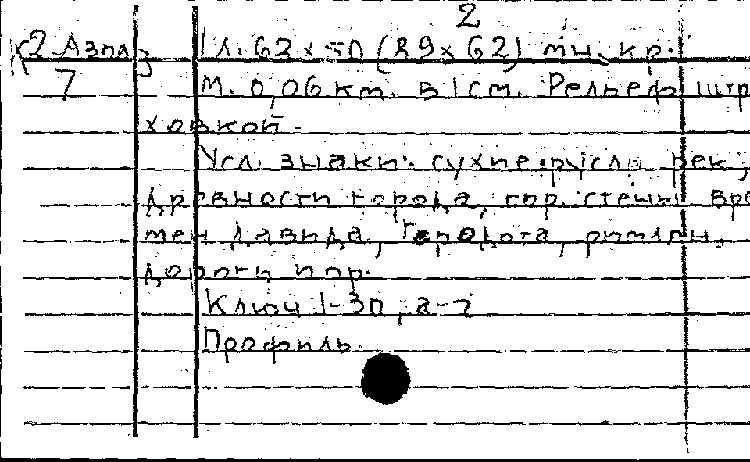 2
К2-Азпл/3 1 л. 62х50 (89х62) мн. кр.
7 М. 0,06 км. в 1 см. Рельеф штр
ховкой.
Усл. знаки: сухие русла рек,
древности города, гор. стены вре
мен Давида, Геродота, римлян,
дороги и пр.
Ключ 1-30, а-г
Профиль.